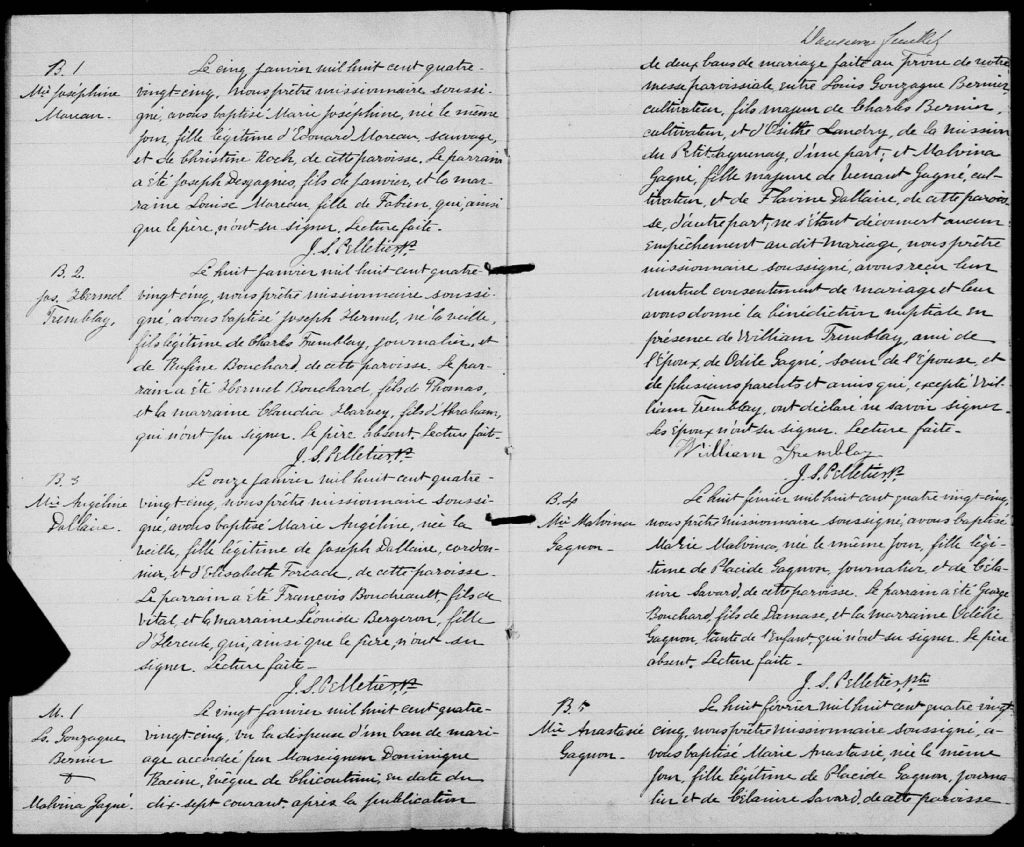 B. 1
Mie Joséphine
Moreau.
Le cinq janvier mil huit cent quatre-
vingt-cinq, nous prêtre missionnaire soussi-
gné, avons baptisé Marie Joséphine, née le même
jour, fille légitime d'Edouard Moreau, sauvage,
et de Christine Roch, de cette paroisse. Le parrain
a été Joseph Desgagnés, fils de Janvier, et la mar-
raine Louise Moreau, fille de Fabien, qui, ainsi
que le père, n'ont su signer. Lecture faite.
J. S. Pelletier, Ptr
B. 2.
Jos. Hermel
Tremblay.
Le huit janvier mil huit cent quatre-
vingt-cinq, nous prêtre missionnaire soussi-
gné, avons baptisé Joseph Hermel, né la veille,
fils légitime de Charles Tremblay, journalier, et
de Rufine Bouchard de cette paroisse. Le par-
rain a été Hermel Bouchard, fils de Thomas,
et la marraine Claudia Harvey, fils d'Abraham,
qui n'ont pu signer. Le père absent. Lecture faite-
J. S. Pelletier, Ptr
B. 3
Mie Angéline
Dallaire.
Le onze janvier mil huit cent quatre-
vingt-cinq, nous prêtre missionnaire soussi-
gné, avons baptisé Marie Angéline, née la
veille, fille légitime de Joseph Dallaire, cordon-
nier, et d'Elisabeth Forcade, de cette paroisse.
Le parrain a été François Boudreault, fils de
Vital, et la marraine Léonide Bergeron, fille
d'Hercule, qui, ainsi que le père, n'ont su
signer. Lecture faite -
J. S. Pelletier, Ptr
M. 1
Ls. Gonzague
Bernier
&
Malvina Gagné.
Le vingt janvier mil huit cent quatre-
vingt-cinq, vu la dispense d'un ban de mari-
age accordée par Monseigneur Dominique
Racine, Evêque de Chicoutimi, en date du
dix-sept courant, après la publication
feuillet
de deux bans de mariage faite au prône de notre
messe paroissiale entre Louis Gonzague Bernier,
cultivateur, fils majeur de Charles Bernier,
cultivateur, et d'Osithe Landry, de la mission
du Petit Saguenay, d'une part; et Malvina
Gagné, fille majeure de Venant Gagné, cul-
tivateur, et de Flavine Dallaire, de cette parois-
se, d'autre part; ne s'étant découvert aucun
empêchement au dit mariage, nous prêtre
missionnaire soussigné, avons reçu leur
mutuel consentement de mariage et leur
avons donné la bénédiction nuptiale en
présence de William Tremblay, ami de
l'Epoux, de Odile Gagné, soeur de l'Epouse, et
de plusieurs parents et amis qui, excepté Wil-
liam Tremblay, ont déclaré ne savoir signer.
Les Epoux n'ont su signer. Lecture faite -
William Tremblay
J. S. Pelletier, Ptr
B. 4
Mie Malvina
Gagnon-
Le huit février mil huit cent quatre vingt-cinq,
nous prêtre missionnaire soussigné, avons baptisé
Marie Malvina, née le même jour, fille légi-
time de Placide Gagnon, journalier et de Céla-
nire Savard, de cette paroisse. Le parrain a été George
Bouchard, fils de Damase, et la marraine Odélie
Gagnon, tante de l'Enfant, qui n'ont su signer. Le père
absent. Lecture faite -
J. S. Pelletier, Ptre
B. 5
Mie Anastasie
Gagnon-
Le huit février mil huit cent quatre vingt-
cinq, nous prêtre missionnaire soussigné, a-
vons baptisé Marie Anastasie, née le même
jour, fille légitime de Placide Gagnon, journa-
lier et de Célanire Savard, de cette paroisse